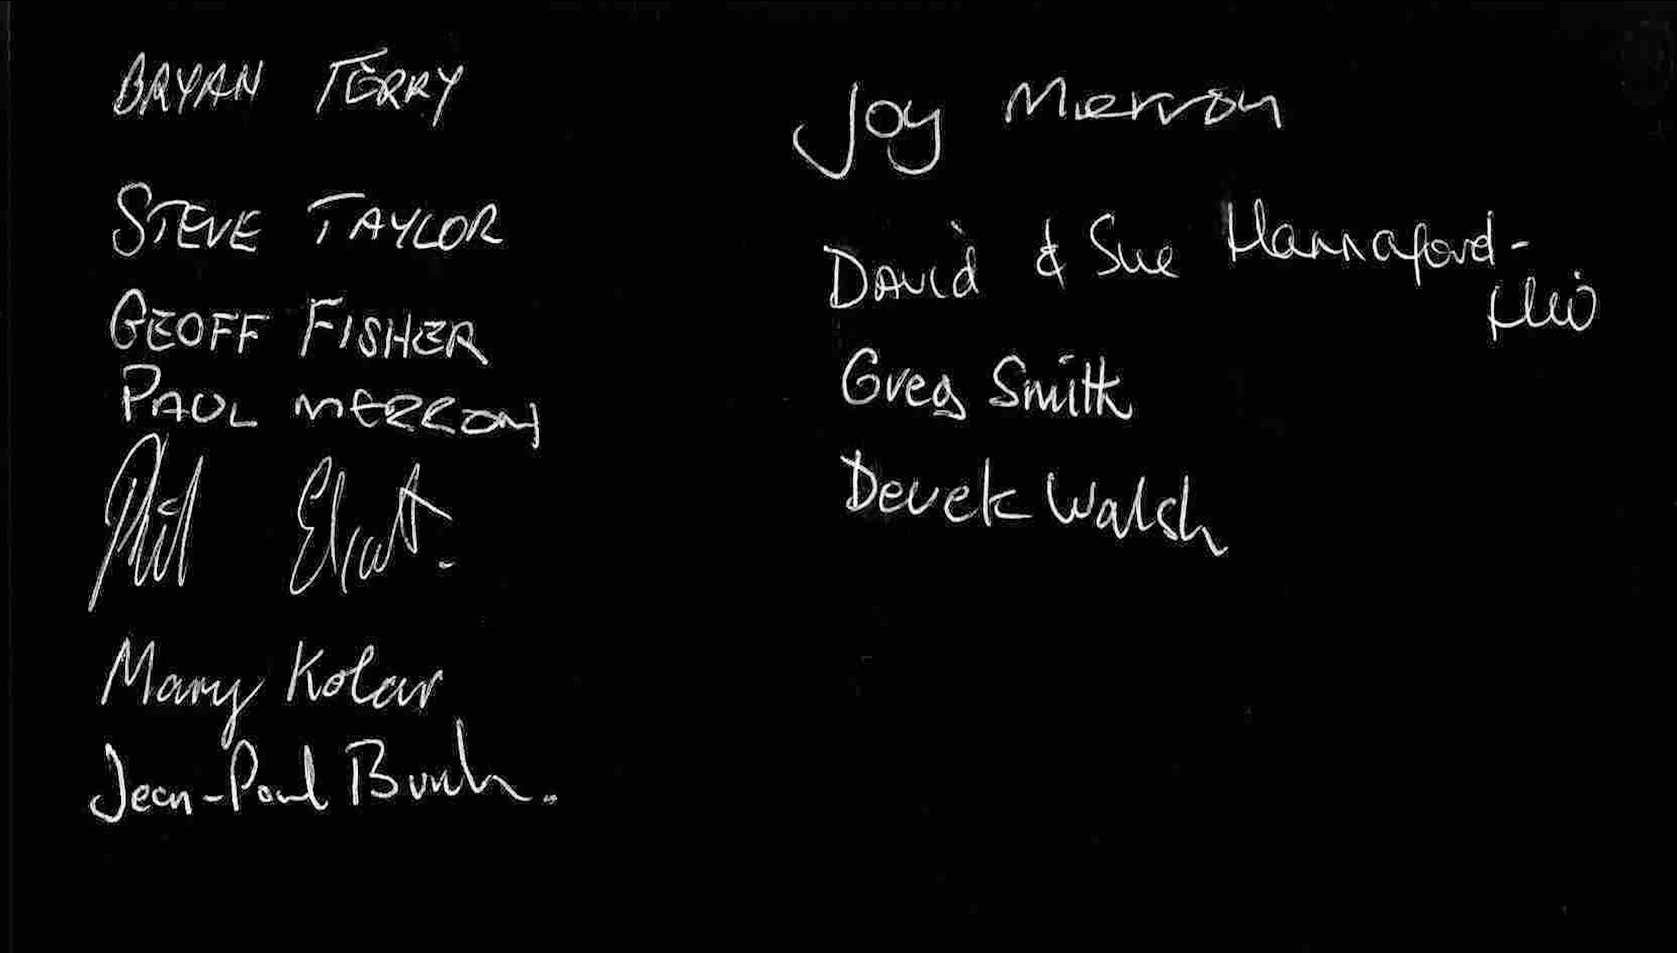 BRYAN TERRY
STEVE TAYLOR
GEOFF FISHER
PAUL MERRON
Phil
Mary Kolar
Jean-Paul
Joy Merron
David & Sue Hannaford-
Greg Smith
Derek Walsh